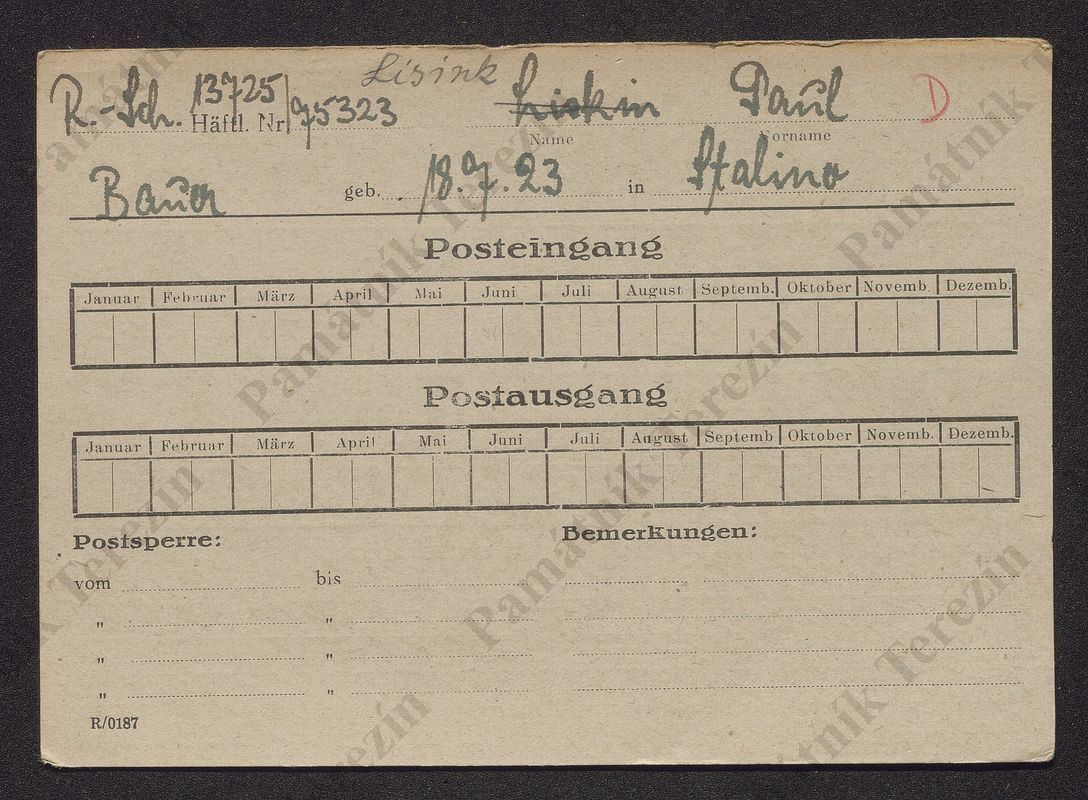 Lisink
R.-Sch. 13725 Häftl. Nr. 95323 Liskin Paul D
Name Vorname
Bauer geb. 18.9.23 in Stalino
Posteingang
Januar Februar März April Mai Juni Juli August Septemb. Oktober Novemb. Dezemb.
Postausgang
Januar Februar März April Mai Juni Juli August Septemb Oktober Novemb. Dezemb.
Postsperre: Bemerkungen:
vom bis
" "
" "
" "
R/0187
Památník Terezín